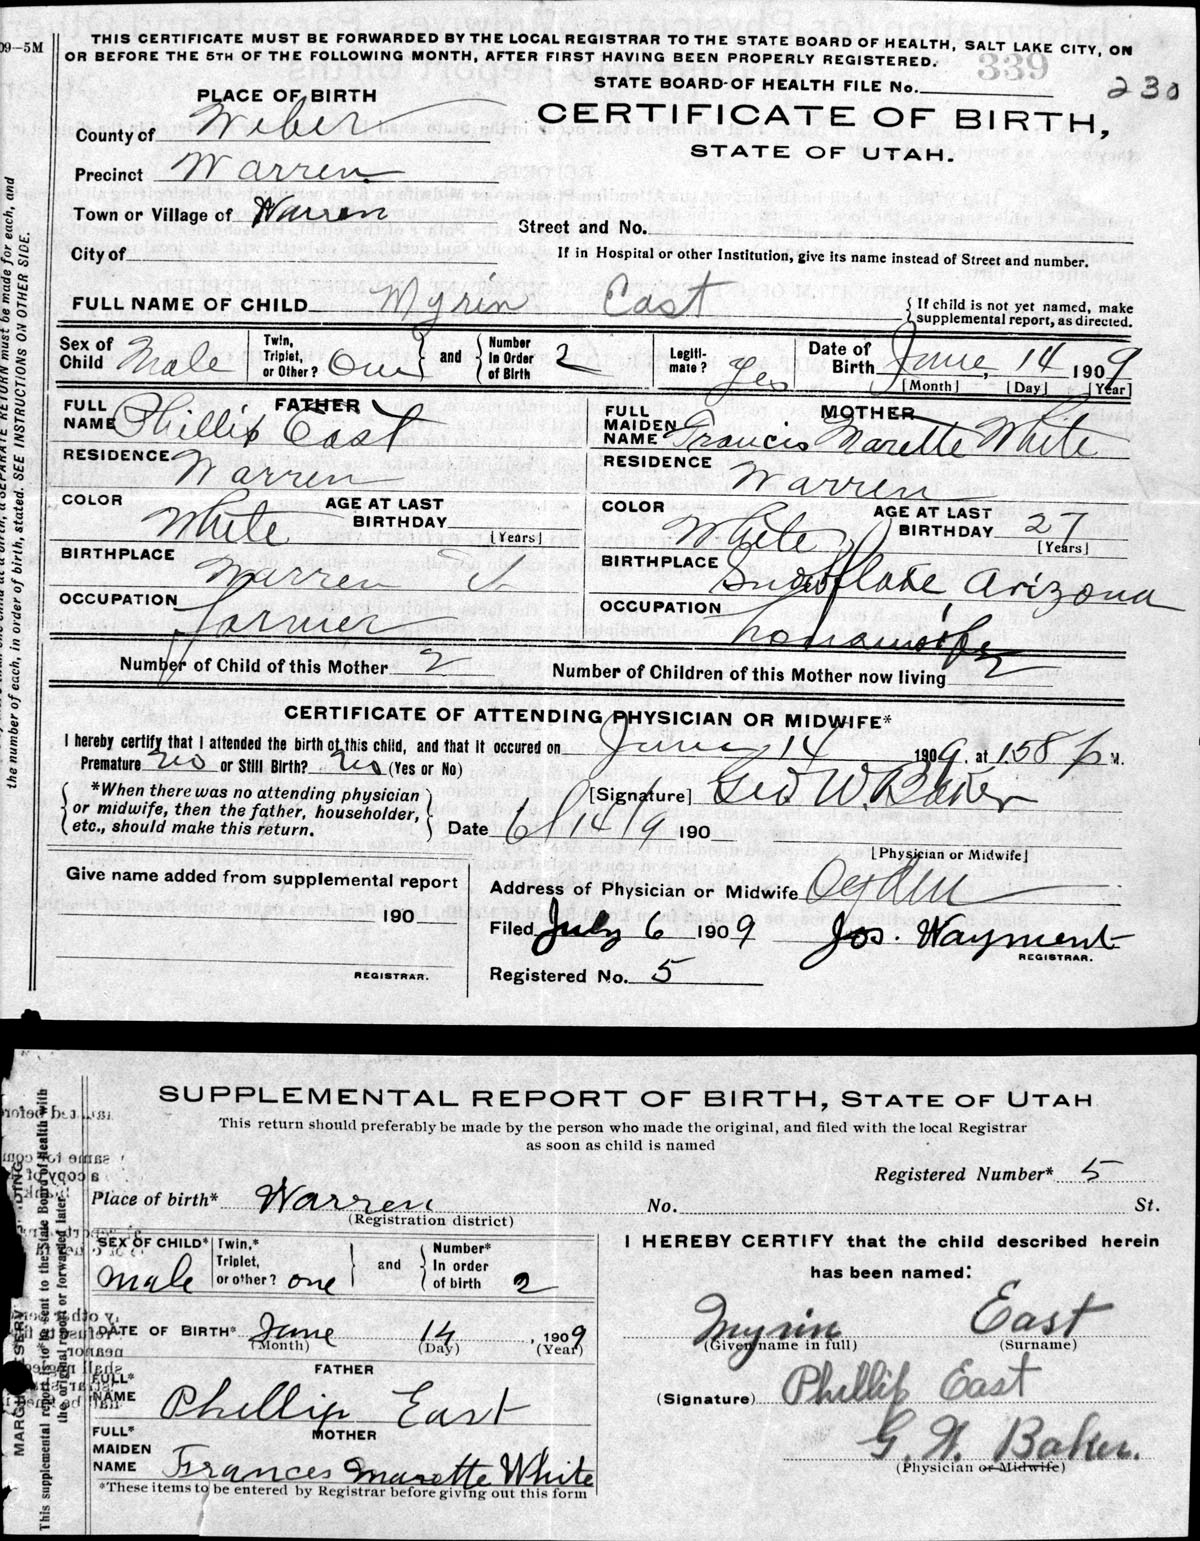 09—5M
THIS CERTIFICATE MUST BE FORWARDED BY THE LOCAL REGISTRAR TO THE STATE BOARD OF HEALTH, SALT LAKE CITY, ON
OR BEFORE THE 5TH OF THE FOLLOWING MONTH, AFTER FIRST HAVING BEEN PROPERLY REGISTERED.
339
STATE BOARD OF HEALTH FILE No. 230
PLACE OF BIRTH
CERTIFICATE OF BIRTH,
STATE OF UTAH.
County of Weber
Precinct Warren
Town or Village of Warren
Street and No.
City of
If in Hospital or other Institution, give its name instead of Street and number.
FULL NAME OF CHILD Myrin East
{If child is not yet named, make
supplemental report, as directed.
Sex of Child Male
Twin, Triplet, or Other? One
and
Number In Order of Birth 2
Legiti-mate? Yes
Date of Birth June, 14 1909
[Month] [Day] [Year]
FATHER
FULL NAME Phillip East
RESIDENCE Warren
COLOR White
AGE AT LAST BIRTHDAY [Years]
BIRTHPLACE Warren
OCCUPATION farmer
MOTHER
FULL MAIDEN NAME Francis Marette White
RESIDENCE Warren
COLOR White
AGE AT LAST BIRTHDAY 27
[Years]
BIRTHPLACE Snowflake, Arizona
OCCUPATION
Number of Child of this Mother 2
Number of Children of this Mother now living 2
CERTIFICATE OF ATTENDING PHYSICIAN OR MIDWIFE*
I hereby certify that I attended the birth of this child, and that it occured on June 14 1909. at 158 p M.
Premature no or Still Birth? no (Yes or No)
*When there was no attending physician
or midwife, then the father, householder,
etc., should make this return.
[Signature] Geo W. Baker
Date 6/14/9 190
[Physician or Midwife]
Give name added from supplemental report
190
REGISTRAR.
Address of Physician or Midwife Ogden
Filed July 6 1909 Jos. Wayment
REGISTRAR.
Registered No. 5
the number of each, in order of birth, stated. SEE INSTRUCTIONS ON OTHER SIDE.
SUPPLEMENTAL REPORT OF BIRTH, STATE OF UTAH
This return should preferably be made by the person who made the original, and filed with the local Registrar
as soon as child is named
Registered Number* 5
Place of birth* Warren
(Registration district)
No. St.
SEX OF CHILD* Male
Twin,* Triplet, or other? one
and
Number* In order of birth 2
DATE OF BIRTH* June 14, 1909
(Month) (Day) (Year)
FATHER
FULL* NAME Phillip East
MOTHER
FULL* MAIDEN NAME Frances Marette White
*These items to be entered by Registrar before giving out this form
I HEREBY CERTIFY that the child described herein
has been named:
Myrin East
(Given name in full) (Surname)
(Signature) Phillip East
G. W. Baker.
(Physician or Midwife)
This supplemental report is to be sent to the State Board of Health with
the original report or forwarded later.